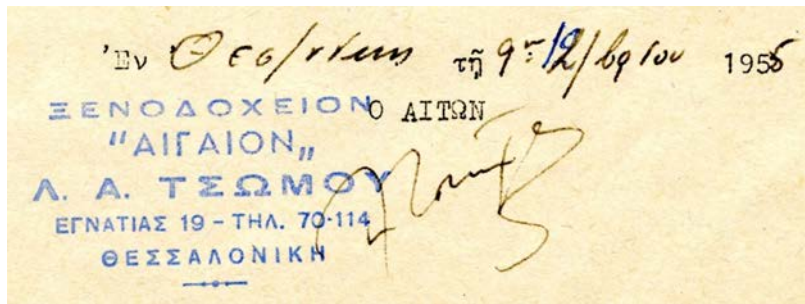 Ἐν Θεσ/νίκῃ τῇ 9ῃ 12/βρίου 1955
Ο ΑΙΤΩΝ
ΞΕΝΟΔΟΧΕΙΟΝ
"ΑΙΓΑΙΟΝ"
Λ. Α. ΤΣΩΜΟΥ
ΕΓΝΑΤΙΑΣ 19 - ΤΗΛ. 70-114
ΘΕΣΣΑΛΟΝΙΚΗ